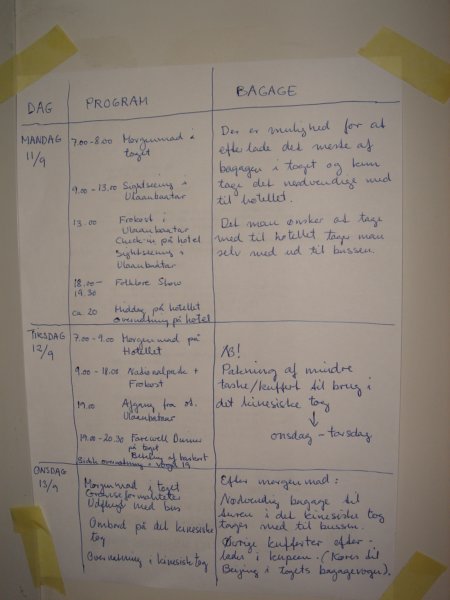 DAG PROGRAM BAGAGE
MANDAG
11/9
7.00-8.00 Morgenmad i
toget
9.00 - 13.00 Sightseeing i
Ulaanbaatar
13.00 Frokost i
Ulaanbaatar
Check-in på hotel
Sightseeing i
Ulaanbaatar
18.00-
19.30 Folklore Show
ca. 20 Middag på hotellet
overnatning på hotel
Der er mulighed for at
efterlade det meste af
bagagen i toget og kun
tage det nødvendige med
til hotellet.
Det man ønsker at tage
med til hotellet tager man
selv med ud til bussen.
TIRSDAG
12/9
7.00-9.00 Morgenmad på
Hotellet
9.00 - 18.00 Nationalpark +
Frokost
19.00 Afgang fra
Ulaanbaatar
19.00-20.30 Farewell Dinner
på toget
Betaling af
overnatning i vogn 19
NB!
Pakning af mindre
taske/kuffert til brug i
det kinesiske tog
↓
onsdag - torsdag
ONSDAG
13/9
Morgenmad i toget
Grænseformaliteter
Udflugt med bus
Ombord på det kinesiske
tog
Overnatning i kinesisk tog
Efter morgenmad:
Nødvendig bagage til
turen i det kinesiske tog
tages med til bussen.
Øvrige kufferter efter-
lades i kupeen. (Køres til
Beijing i togets bagagevogn).